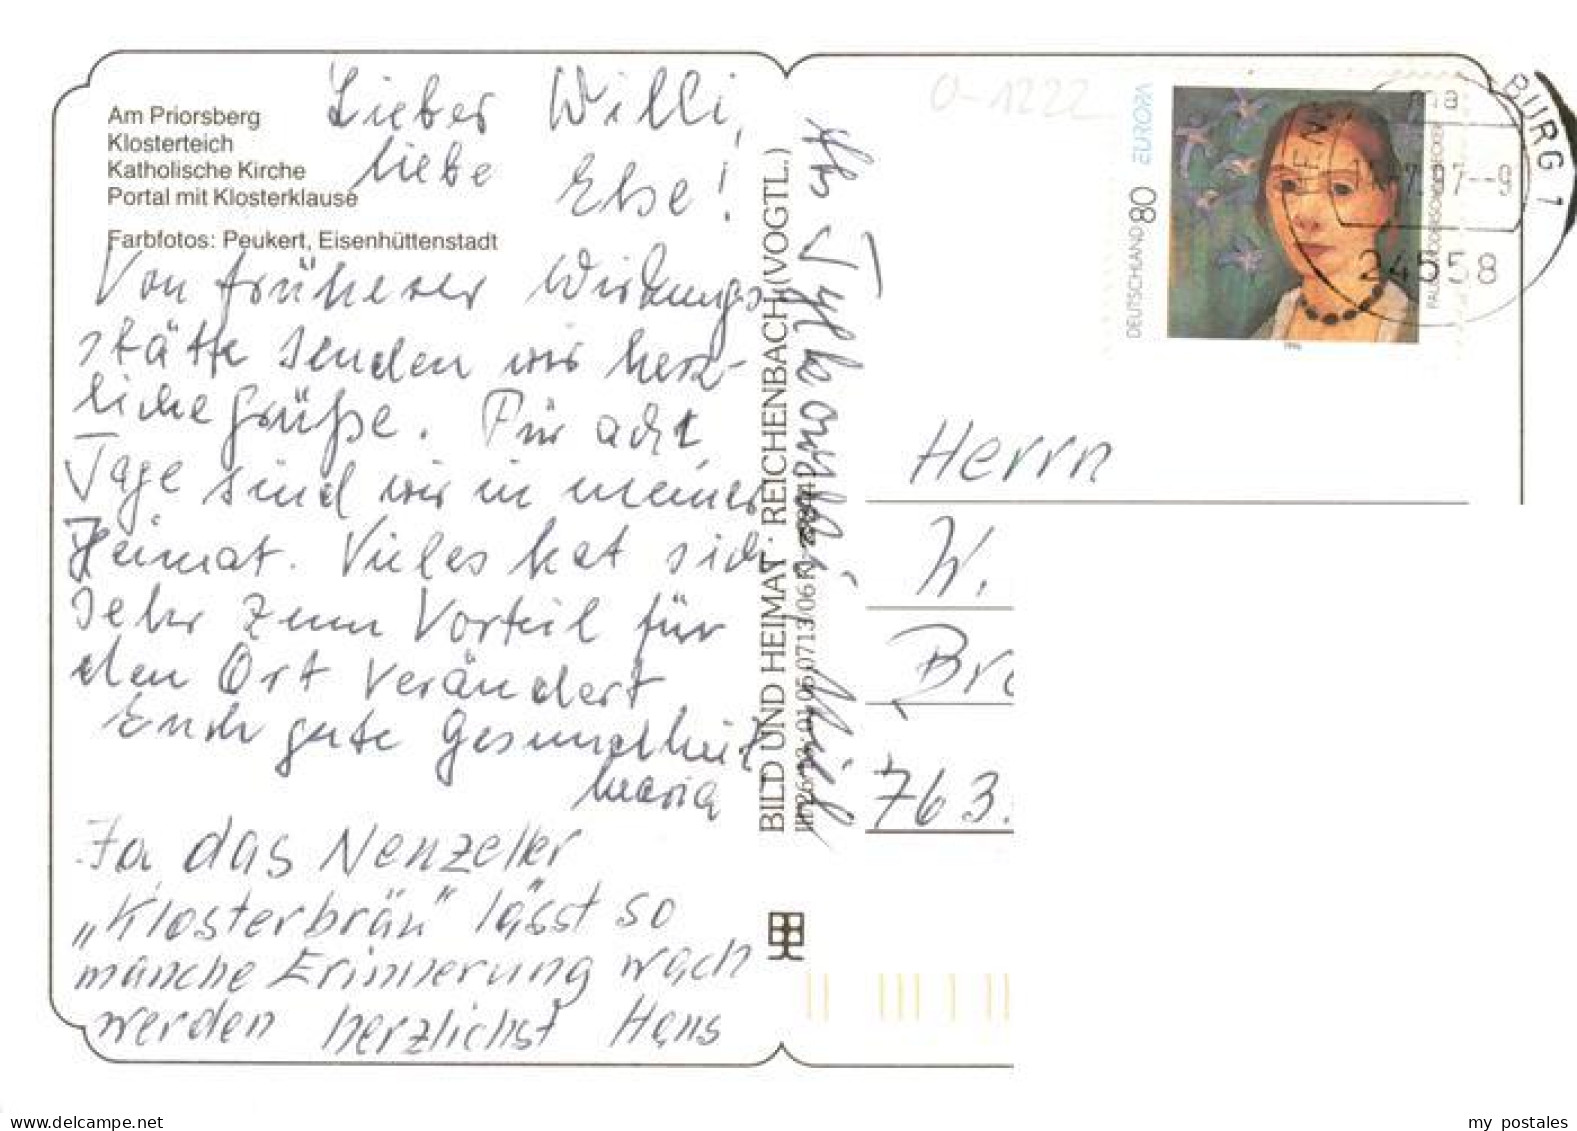 Am Priorsberg
Klosterteich
Katholische Kirche
Portal mit Klosterklause
Farbfotos: Peukert, Eisenhüttenstadt
Lieber Willi,
liebe Else!
Von früherer Wirkungs-
stätte senden wir herz-
liche Grüße. Für acht
Tage sind wir in meiner
Heimat. Vieles hat sich
sehr zum Vorteil für
den Ort verändert
Euch gute Gesundheit
Maria
Ja, das Nenzeller
„Klosterbräu" lässt so
manche Erinnerung wach
werden herzlichst Hans
BILD UND HEIMAT · REICHENBACH (VOGTL.)
III/26/13 01 06 0713/06
0-1222
EUROPA
DEUTSCHLAND 80
PAULA MODERSOHN-BECKER
1996
BURG 1
24558
Herrn
W.
Br
763
my postales
www.delcampe.net